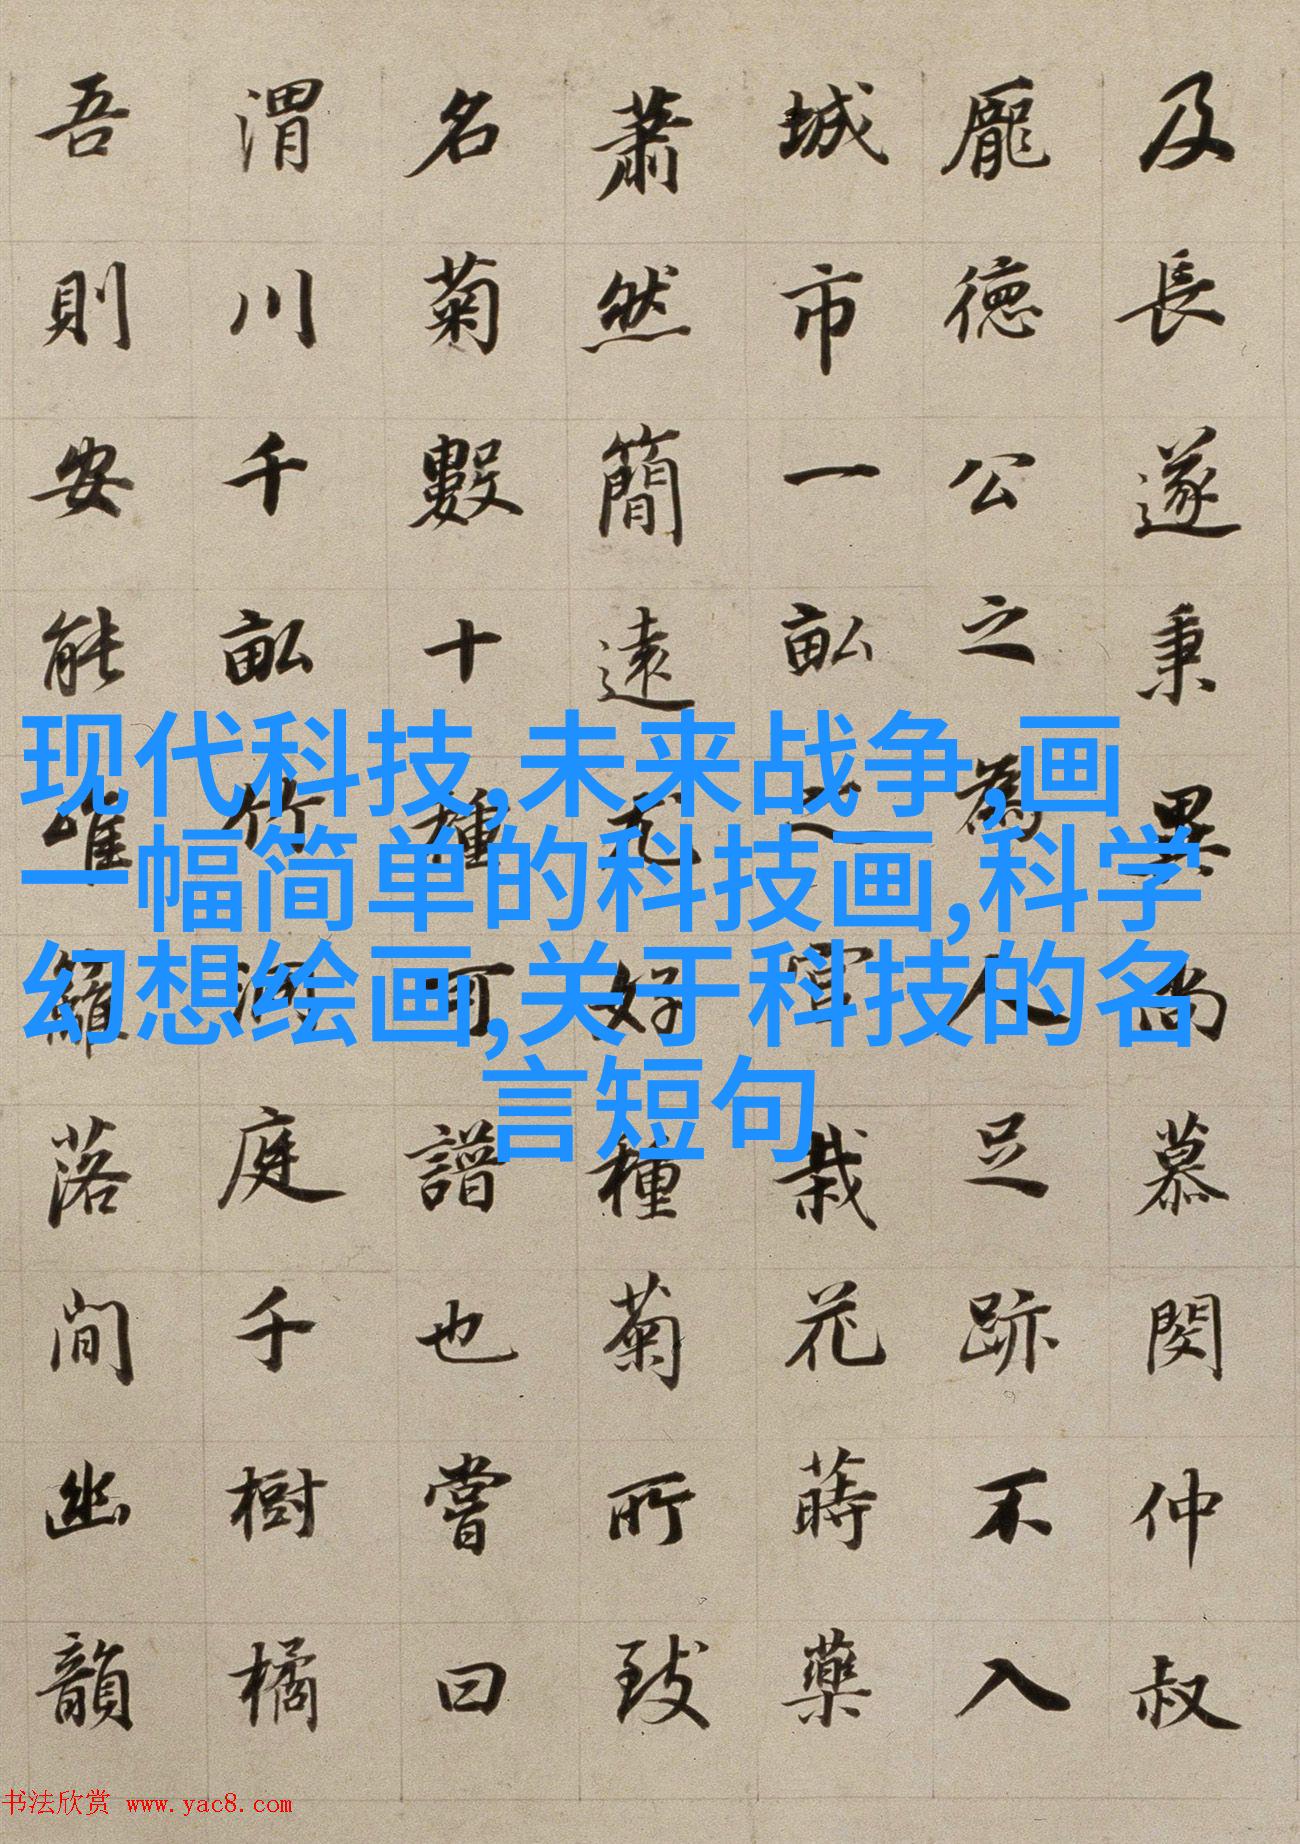 及長遂秉異尚慕閔仲叔
龐徳公之為人足跡不入
城市一畝之宮栽花蒔藥
蕭然簡遠尤好種菊所致
名菊數十種可譜也嘗曰
渭川千畝竹洞庭千樹橘
吾則安能唯籬落間幽韻
现代科技,未来战争,画
一幅简单的科技画,科学
幻想绘画,关于科技的名
言短句
书法欣赏 www.yac8.com